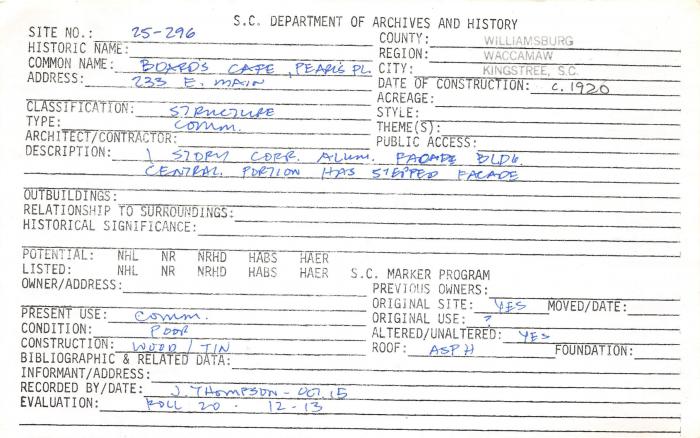 S.C. DEPARTMENT OF ARCHIVES AND HISTORY
SITE NO.: 25-296 COUNTY: WILLIAMSBURG
HISTORIC NAME: REGION: WACCAMAW
COMMON NAME: BOARD'S CAFE, PEARL'S PL. CITY: KINGSTREE, S.C.
ADDRESS: 233 E. MAIN DATE OF CONSTRUCTION: C. 1920
ACREAGE:
CLASSIFICATION: STRUCTURE STYLE:
TYPE: COMM. THEME(S):
ARCHITECT/CONTRACTOR: PUBLIC ACCESS:
DESCRIPTION: 1 STORY CORR. ALUM. FACADE BLDG.
CENTRAL PORTION HAS STEPPED FACADE
OUTBUILDINGS:
RELATIONSHIP TO SURROUNDINGS:
HISTORICAL SIGNIFICANCE:
POTENTIAL: NHL NR NRHD HABS HAER
LISTED: NHL NR NRHD HABS HAER S.C. MARKER PROGRAM
OWNER/ADDRESS: PREVIOUS OWNERS:
ORIGINAL SITE: YES MOVED/DATE:
PRESENT USE: COMM. ORIGINAL USE: ?
CONDITION: POOR ALTERED/UNALTERED: YES
CONSTRUCTION: WOOD/TIN ROOF: ASPH FOUNDATION:
BIBLIOGRAPHIC & RELATED DATA:
INFORMANT/ADDRESS:
RECORDED BY/DATE: J. THOMPSON - OCT. 15
EVALUATION: ROLL 20 - 12-13